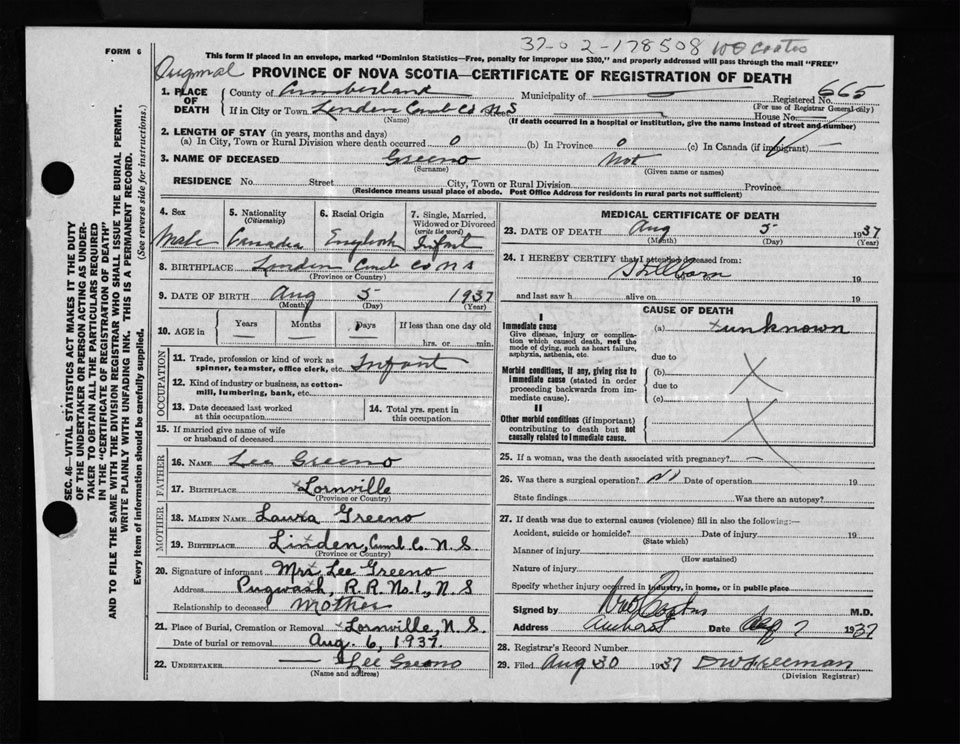 37-02-178508 WO Coates
FORM 6
This form if placed in an envelope, marked "Dominion Statistics—Free, penalty for improper use $300," and properly addressed will pass through the mail "FREE"
Original
PROVINCE OF NOVA SCOTIA—CERTIFICATE OF REGISTRATION OF DEATH
1. PLACE OF DEATH
County of Cumberland Municipality of — Registered No. 665
(For use of Registrar General only)
If in City or Town Linden Cumb Co N.S — House No. —
(Name) (If death occurred in a hospital or institution, give the name instead of street and number)
2. LENGTH OF STAY (in years, months and days)
(a) In City, Town or Rural Division where death occurred 0 (b) In Province 0 (c) In Canada (if immigrant) —
3. NAME OF DECEASED Greeno Not
(Surname) (Given name or names)
RESIDENCE No. Street City, Town or Rural Division Province
(Residence means usual place of abode. Post Office Address for residents in rural parts not sufficient)
4. Sex
Male
5. Nationality
(Citizenship)
Canadia
6. Racial Origin
English
7. Single, Married, Widowed or Divorced
(write the word)
Infant
8. BIRTHPLACE Linden Cumb Co N S
(Province or Country)
9. DATE OF BIRTH Aug 5 1937
(Month) (Day) (Year)
10. AGE in Years Months Days If less than one day old
hrs. or min.
OCCUPATION
11. Trade, profession or kind of work as
spinner, teamster, office clerk, etc. Infant
12. Kind of industry or business, as cotton-
mill, lumbering, bank, etc.
13. Date deceased last worked
at this occupation
14. Total yrs. spent in
this occupation
15. If married give name of wife
or husband of deceased
FATHER
16. NAME Lee Greeno
17. BIRTHPLACE Lornville
(Province or Country)
MOTHER
18. MAIDEN NAME Laura Greeno
19. BIRTHPLACE Linden, Cumb. Co. N.S.
(Province or Country)
20. Signature of informant Mrs Lee Greeno
Address Pugwash, R.R. No.1., N.S
Relationship to deceased Mother
21. Place of Burial, Cremation or Removal Lornville, N.S.
Date of burial or removal Aug. 6, 1937.
22. UNDERTAKER — Lee Greeno
(Name and address)
MEDICAL CERTIFICATE OF DEATH
23. DATE OF DEATH Aug 5 1937
(Month) (Day) (Year)
24. I HEREBY CERTIFY that I attended deceased from:
Stillborn 19
and last saw h alive on 19
CAUSE OF DEATH
I
Immediate cause
Give disease, injury or complica-
tion which caused death, not the
mode of dying, such as heart failure,
asphyxia, asthenia, etc.
(a) unknown
due to
Morbid conditions, if any, giving rise to
immediate cause (stated in order
proceeding backwards from im-
mediate cause).
(b)
due to
(c)
II
Other morbid conditions (if important)
contributing to death but not
causally related to immediate cause.
25. If a woman, was the death associated with pregnancy? —
26. Was there a surgical operation? Date of operation 19
State findings Was there an autopsy?
27. If death was due to external causes (violence) fill in also the following:—
Accident, suicide or homicide? Date of injury 19
(State which)
Manner of injury
(How sustained)
Nature of injury
Specify whether injury occurred in industry, in home, or in public place
Signed by M.D.
Address Amherst Date Aug 7 1937
28. Registrar's Record Number
29. Filed Aug 30 1937 DW Freeman
(Division Registrar)
SEC. 46—VITAL STATISTICS ACT MAKES IT THE DUTY
OF THE UNDERTAKER OR PERSON ACTING AS UNDER-
TAKER TO OBTAIN ALL THE PARTICULARS REQUIRED
IN THE "CERTIFICATE OF REGISTRATION OF DEATH"
AND TO FILE THE SAME WITH THE DIVISION REGISTRAR WHO SHALL ISSUE THE BURIAL PERMIT.
WRITE PLAINLY WITH UNFADING INK. THIS IS A PERMANENT RECORD.
Every item of information should be carefully supplied. (See reverse side for instructions.)